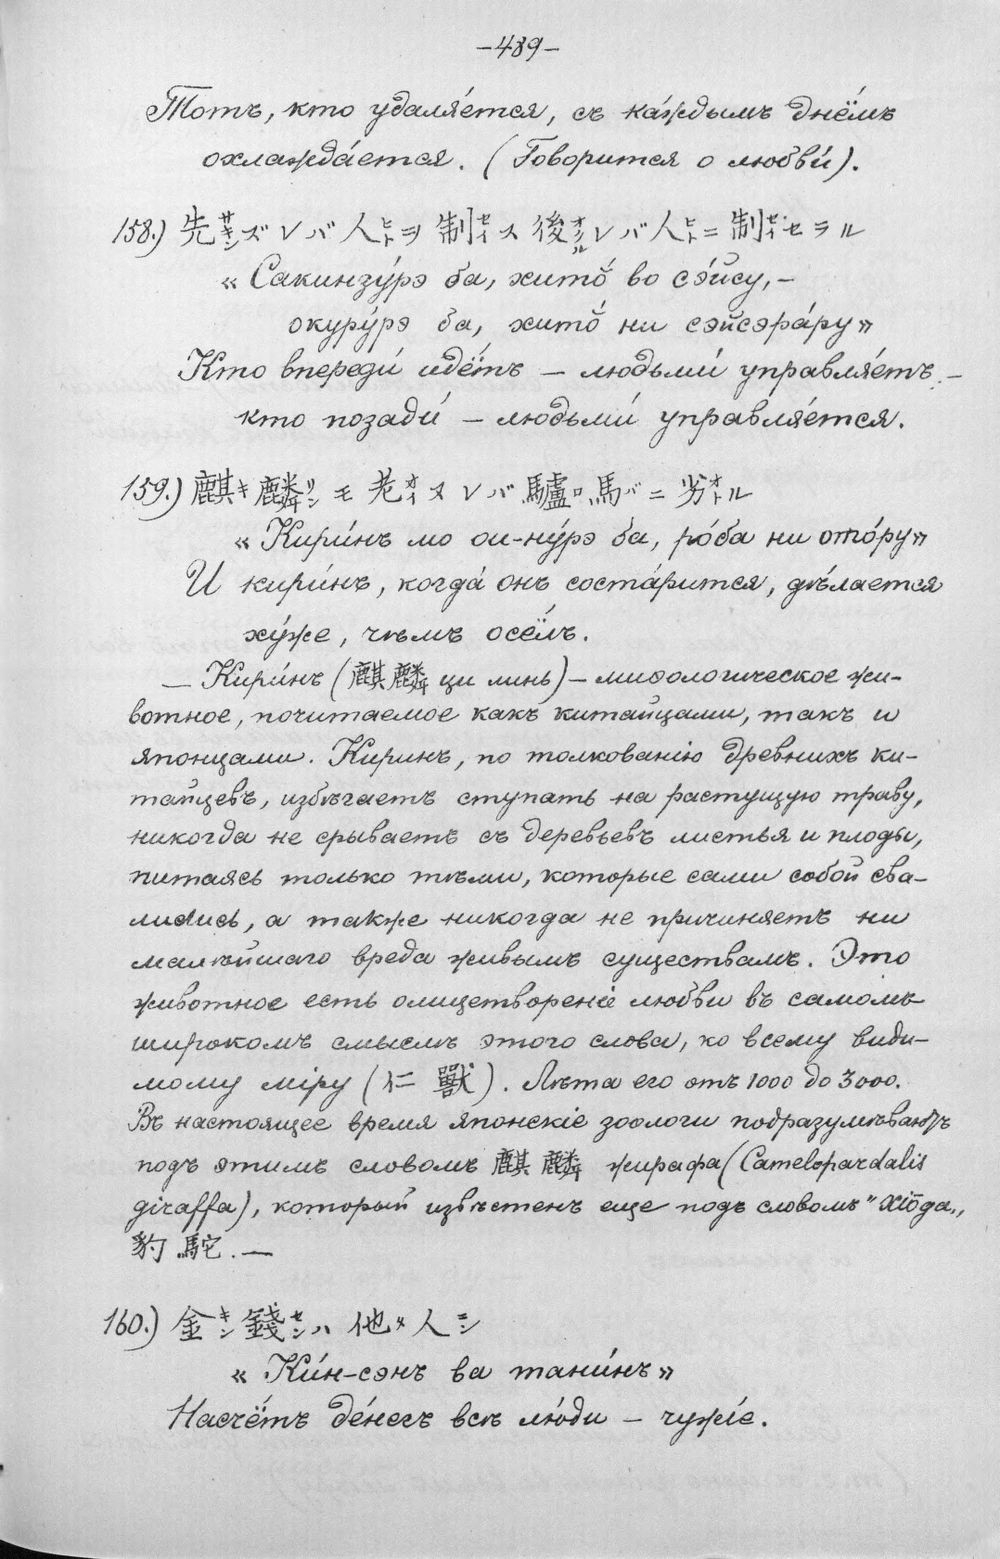 —489—
Тотъ, кто удаля́ется, съ ка́ждымъ днёмъ
охлажда́ется. (Говорится о любви́).
158.) 先サキンズレバ人ヒトヲ制セイス後オクルレバ人ヒトニ制セイセラル
« Сакинзу́рэ ба, хито̆ во сэ́йсу, —
окуру́рэ ба, хито̆ ни сэйсэра́ру»
Кто впереди́ идётъ — людьми́ управля́етъ; —
кто позади́ — людьми́ управля́ется.
159.) 麒キ麟リンモ老オイヌレバ驢ロ馬バニ劣オトル
« Кири́нъ мо ои-ну́рэ ба, ро́ба ни ото́ру»
И кири́нъ, когда́ онъ соста́рится, дѣлается
ху́же, чѣмъ осёлъ.
— Кири́нъ (麒麟 ци линь) — миѳологическое жи-
вотное, почитаемое какъ китайцами, такъ и
японцами. Киринъ, по толкованію древнихъ ки-
тайцевъ, избѣгаетъ ступать на растущую траву,
никогда не срываетъ съ деревьевъ листья и плоды,
питаясь только тѣми, которые сами собой сва-
лились, а также никогда не причиняетъ ни
малѣйшаго вреда живымъ существамъ. Это
животное есть олицетвореніе любви въ самомъ
широкомъ смыслѣ этого слова, ко всему види-
мому міру (仁 獸). Лѣта его отъ 1000 до 3000.
Въ настоящее время японскіе зоологи подразумѣваютъ
подъ этимъ словомъ 麒麟 жирафа (Camelopardalis
giraffa), который извѣстенъ еще подъ словомъ "хіо̄да„
豹駝. —
160.) 金キン錢センハ他タ人ニン
« Ки́н-сэнъ ва тани́нъ»
Насчётъ де́негъ всѣ лю́ди — чужі́е.